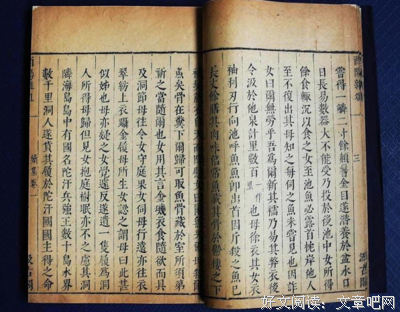 酉陽雜俎
三
汲古閣
嘗得一鱗二寸餘赬鬐金目遂潛養於盆水
日長易數器大不能受乃投於後池中女所得
餘食輒沉以食之女至池魚必露首枕岸他人
至不復出其母知之每伺之魚未嘗見也因詐
女曰爾無勞乎吾爲爾新其襦乃易其弊衣後
令汲於他泉計里數百也母徐衣其女衣
袖利刃行向池呼魚魚卽出首因斤殺之魚已
長丈餘膳其肉味倍常魚藏其骨於鬱棲之下
天而降慰女曰爾
魚矣骨在糞下爾歸可取魚骨藏於室所須第
祈之當隨爾也女用其言金璣衣食隨欲而具
及洞節母往令女守庭果女伺母行遠亦往衣
翠紡上衣躡金履母所生女認之謂母曰此甚
似姊也母亦疑之女覺遽反遂遺一隻履爲洞
人所得母歸但見女抱庭樹眠亦不之慮其洞
隣海島島中有國名陀汗兵強王數十島水界
數千里洞人遂貨其履於陀汗國國主得之命
續集卷一
好文阅读：文章吧网